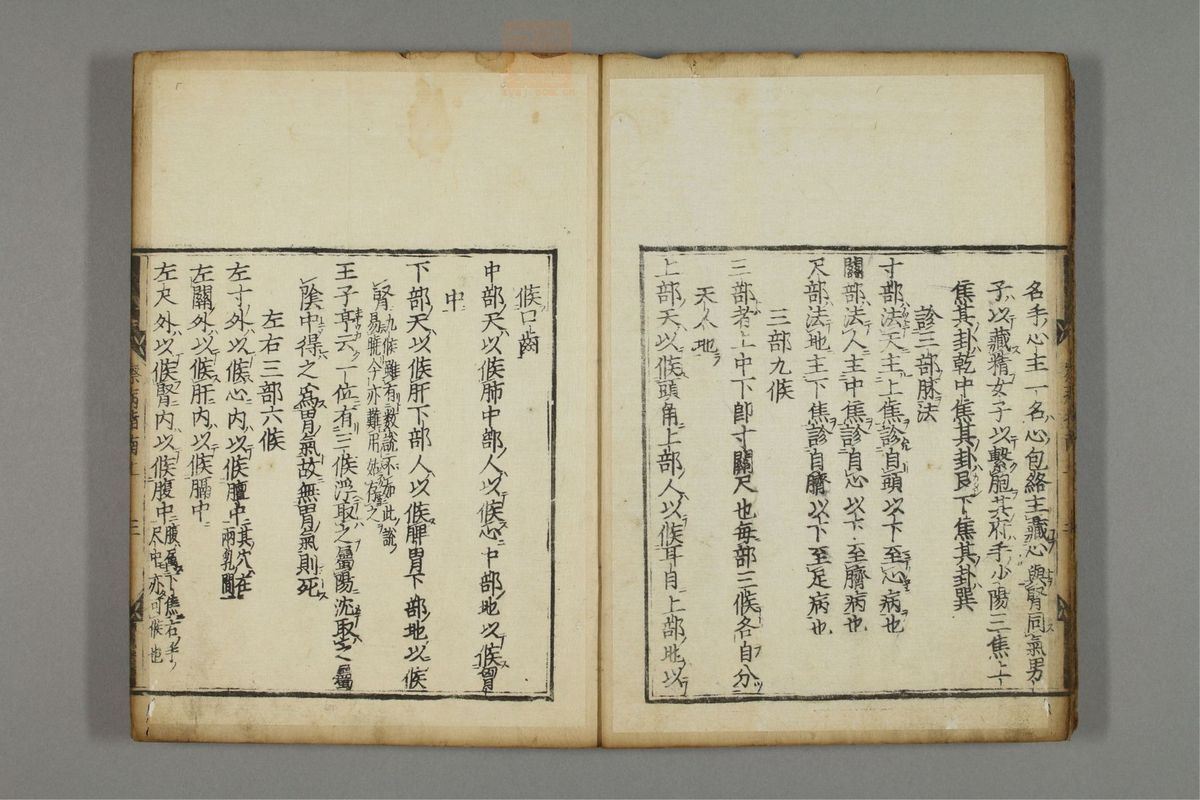 名手心主一名心包絡主藏心與腎同氣男
子以藏精女子以繫胞其府手少陽三焦上
焦其卦乾中焦其卦艮下焦其卦巽
診三部脉法
寸部法天主上焦診自頭以下至心病也
關部法人主中焦診自心以下至臍病也
尺部法地主下焦診自臍以下至足病也
三部九候
三部者上中下卽寸關尺也每部三候各自分
天人地
上部天以候頭角上部人以候耳目上部地以
候口齒
中部天以候肺中部人以候心中部地以候胃
中
下部天以候肝下部人以候脾胃下部地以候
腎九候雖有數說不如此說
易曉今亦難用姑存之
王子亨云一位有三候浮取之屬陽沈取之屬
陰中得之爲胃氣故無胃氣則死
左右三部六候
左寸外以候心內以候膻中其穴在
兩乳間
左關外以候肝內以候膈中
左尺外以候腎內以候腹中腹爲下焦右手
尺中亦可候也